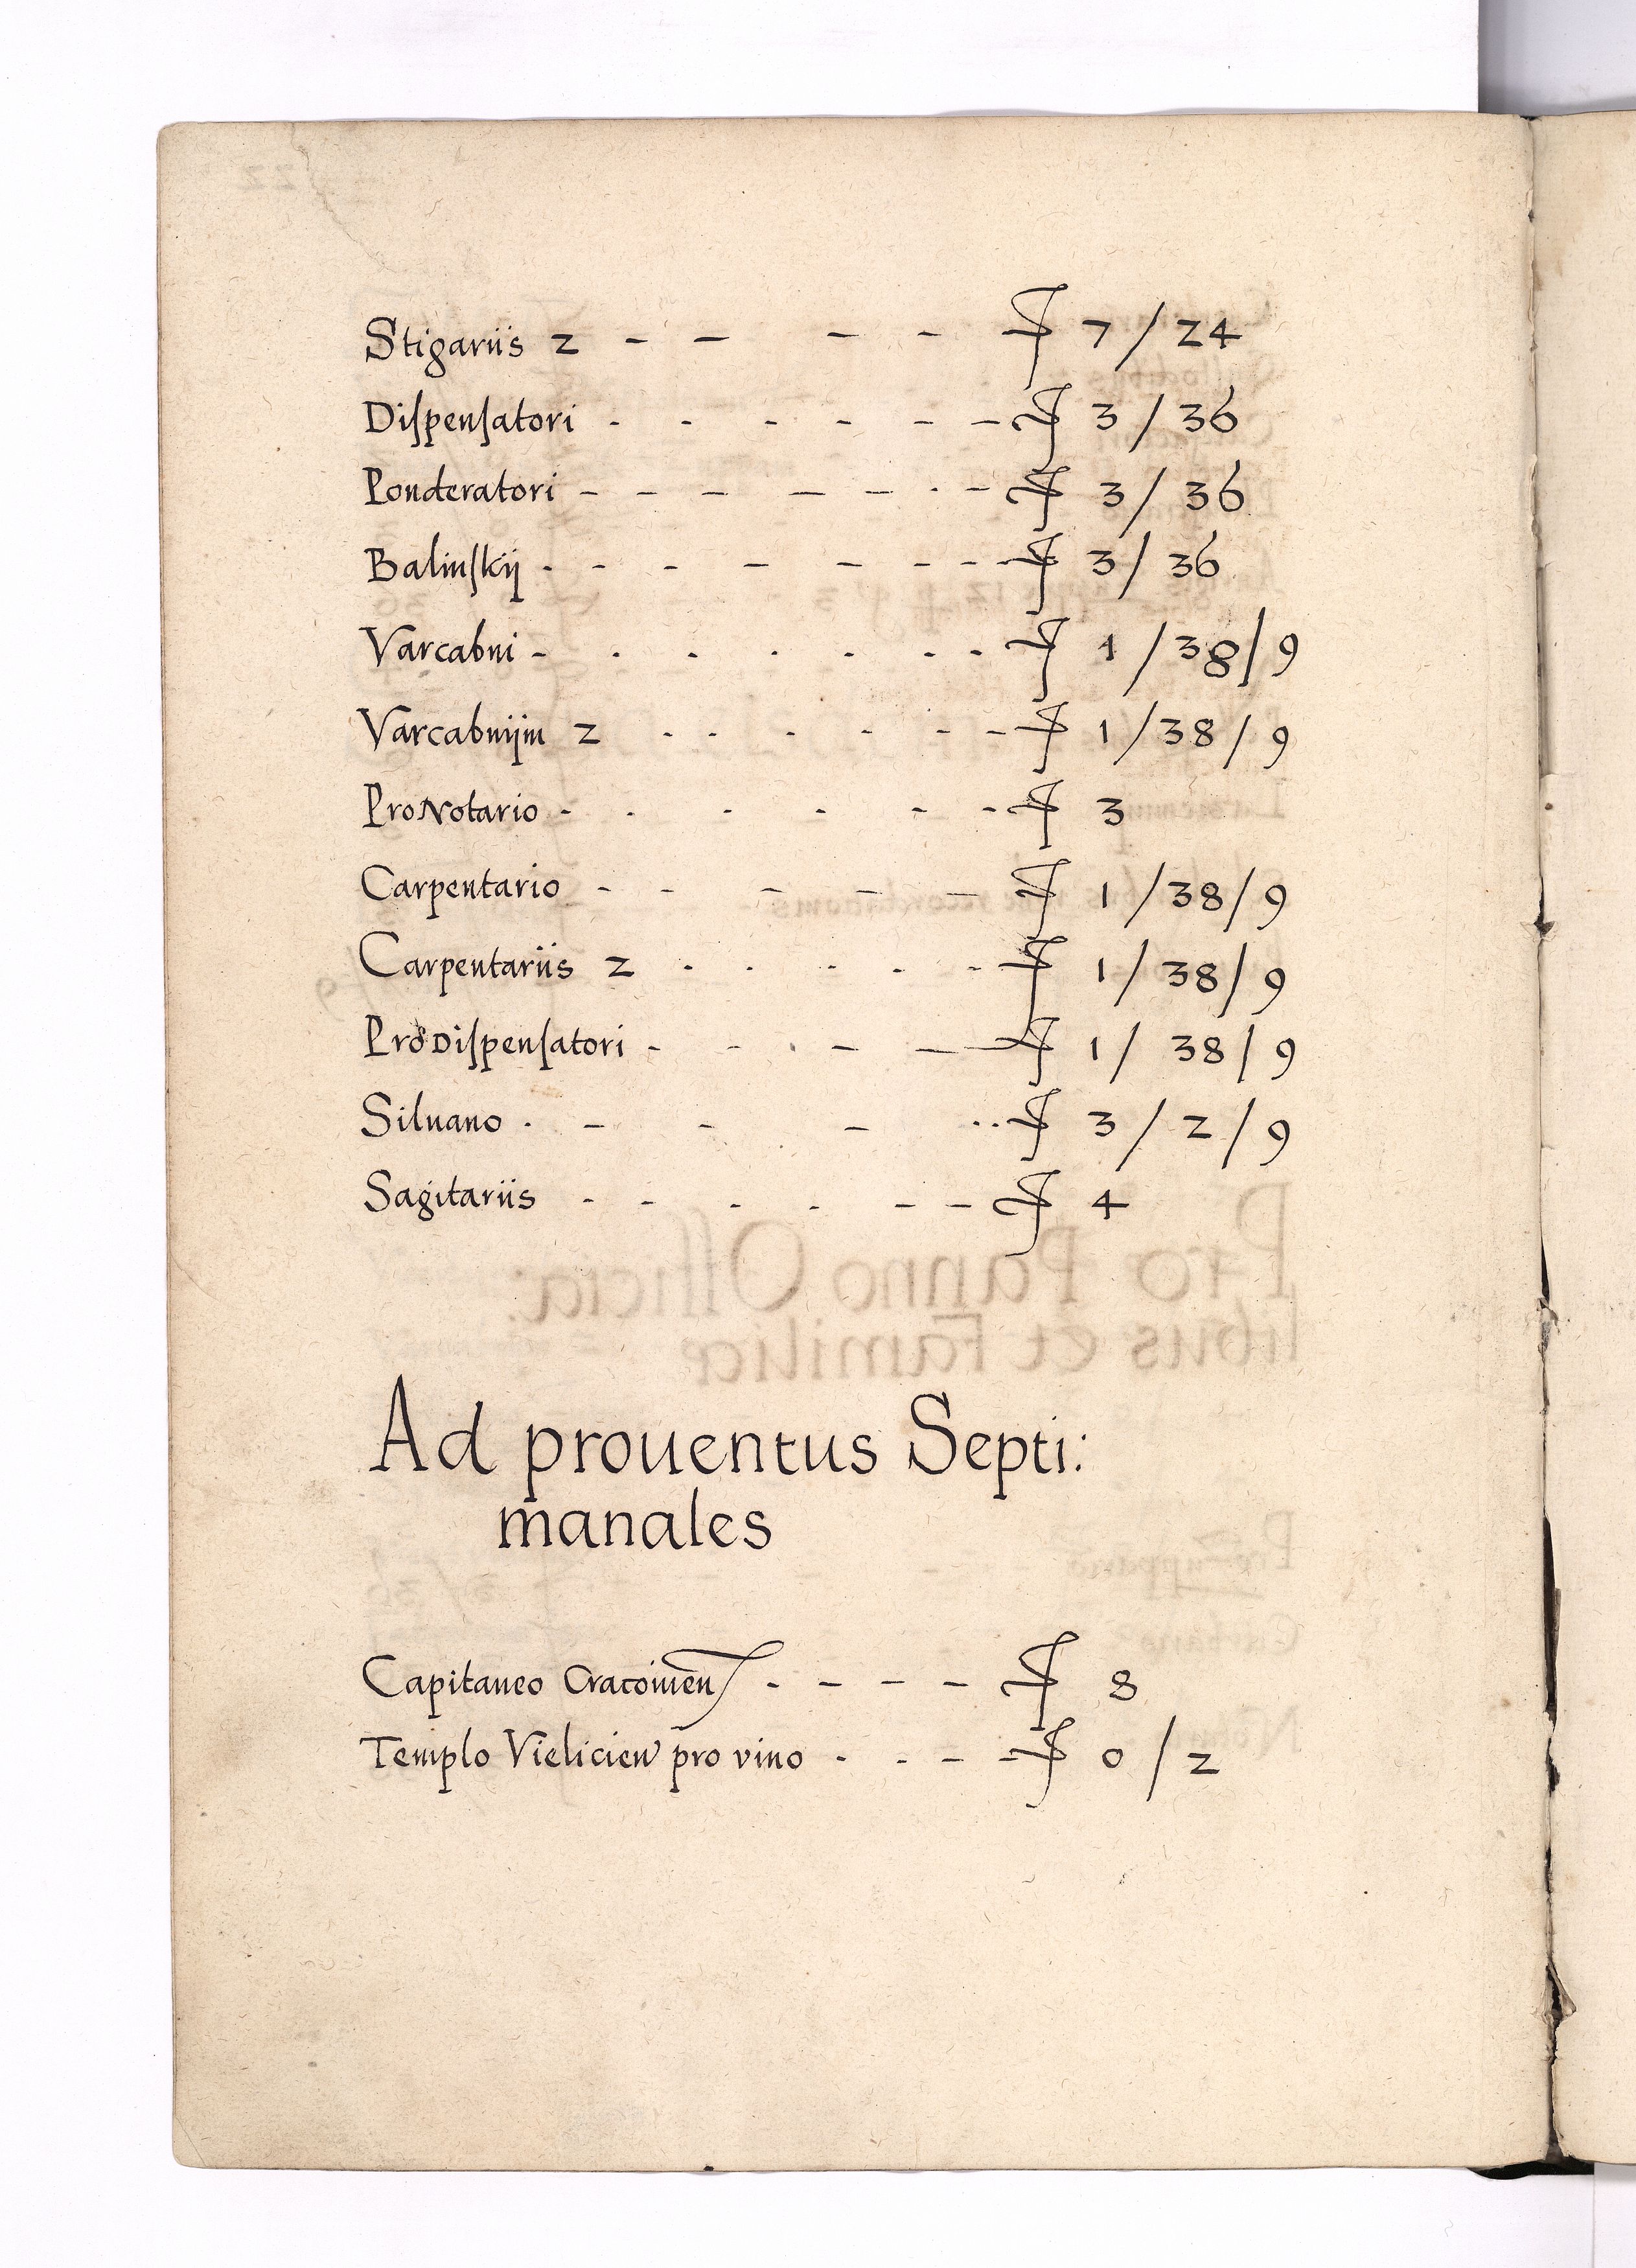 Stigariis 2 - - - - ƒ 7 / 24
Diſpenſatori - - - - - - ƒ 3 / 36
Ponderatori - - - - - - - ƒ 3 / 36
Balinſkij - - - - - - - - ƒ 3 / 36
Varcabni - - - - - - - ƒ 1 / 38 / 9
Varcabnijm 2 - - - - - - ƒ 1 / 38 / 9
ProNotario - - - - - - ƒ 3
Carpentario - - - - - ƒ 1 / 38 / 9
Carpentariis 2 - - - - - ƒ 1 / 38 / 9
ProDiſpenſatori - - - - - ƒ 1 / 38 / 9
Siluano - - - - - - ƒ 3 / 2 / 9
Sagitariis - - - - - - ƒ 4
Ad prouentus Septi:
manales
Capitaneo Cracouien - - - - ƒ 8
Templo Vielicien pro vino - - - - ƒ 0 / 2